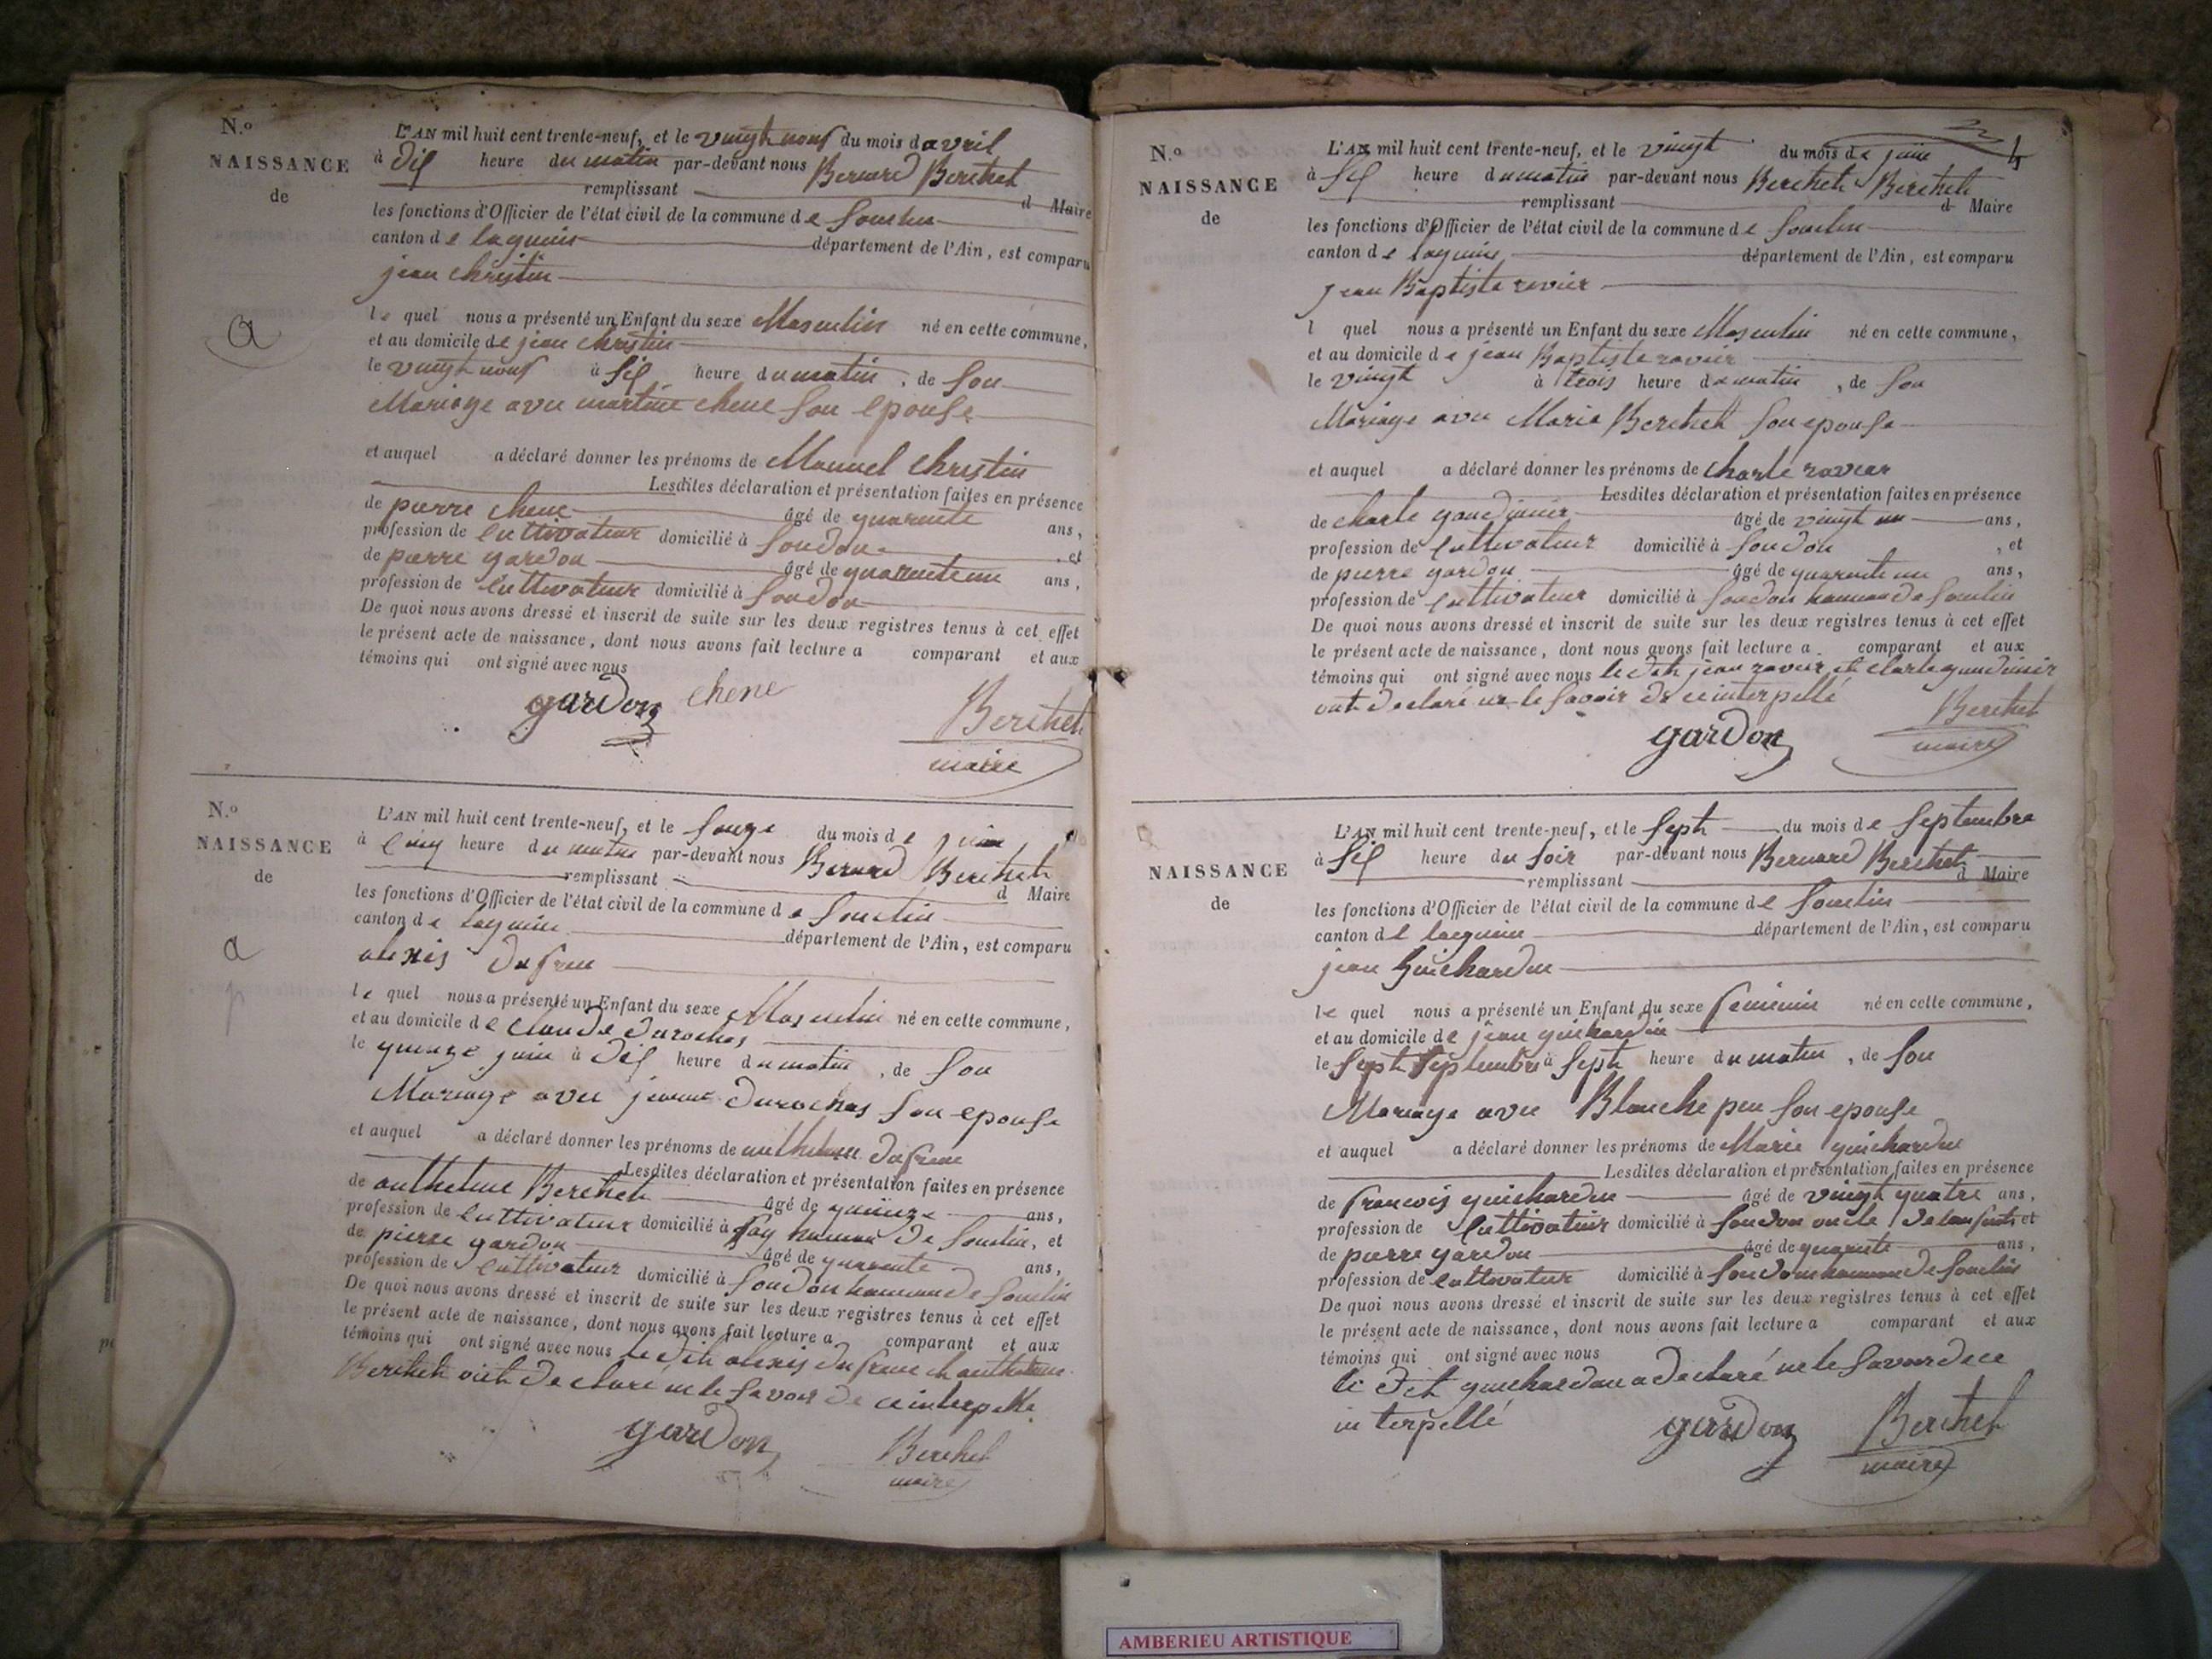 N.o
NAISSANCE
de
L'AN mil huit cent trente-neuf, et le vingt nouf du mois d avril
à dis heure du matin par-devant nous Bernard Berthet
remplissant d Maire
les fonctions d'Officier de l'état civil de la commune de Souclin
canton de lagnieu département de l'Ain, est comparu
jean christin
a
le quel nous a présenté un Enfant du sexe Masculin né en cette commune,
et au domicile de jean christin
le vingt nouf à sis heure du matin, de son
Mariage avec martine chene son epouse
et auquel a déclaré donner les prénoms de Manuel christin
Lesdites déclaration et présentation faites en présence
de pierre chene âgé de quarente ans,
profession de cultivateur domicilié à Soudon et
de pierre gardon âgé de quarente un ans,
profession de cultivateur domicilié à Soudon
De quoi nous avons dressé et inscrit de suite sur les deux registres tenus à cet effet
le présent acte de naissance, dont nous avons fait lecture a comparant et aux
témoins qui ont signé avec nous
gardon chene Berthet
maire
N.o
NAISSANCE
de
L'AN mil huit cent trente-neuf, et le du mois de juin
à cinq heure du matin par-devant nous Bernard Berthet
remplissant d Maire
les fonctions d'Officier de l'état civil de la commune de Souclin
canton de lagnieu département de l'Ain, est comparu
a
alexis dufrene
le quel nous a présenté un Enfant du sexe Masculin né en cette commune,
et au domicile de Claude durochas
le quinze juin à dis heure du matin, de son
Mariage avec jeanne durochas son epouse
et auquel a déclaré donner les prénoms de anthelme dufrene
Lesdites déclaration et présentation faites en présence
de anthelme Berthet âgé de quinze ans,
profession de cultivateur domicilié à fay hameau de Souclin, et
de pierre gardon âgé de quarente ans,
profession de cultivateur domicilié à Soudon hameau de Souclin
De quoi nous avons dressé et inscrit de suite sur les deux registres tenus à cet effet
le présent acte de naissance, dont nous avons fait lecture a comparant et aux
témoins qui ont signé avec nous le dit alexis dufrene et anthelme
Berthet ont declaré ne le savoir de ce interpellé
gardon Berthet
maire
4
N.o
NAISSANCE
de
L'AN mil huit cent trente-neuf, et le vingt du mois de juin
à sis heure du matin par-devant nous Berthet Berthet
remplissant d Maire
les fonctions d'Officier de l'état civil de la commune de Souclin
canton de lagnieu département de l'Ain, est comparu
jean Baptiste ravier
l quel nous a présenté un Enfant du sexe Masculin né en cette commune,
et au domicile de jean Baptiste ravier
le vingt à trois heure du matin, de son
Mariage avec Marie Berthet son epouse
et auquel a déclaré donner les prénoms de charle ravier
Lesdites déclaration et présentation faites en présence
de charle goudinier âgé de vingt un ans,
profession de cultivateur domicilié à Soudon, et
de pierre gardon âgé de quarente un ans,
profession de cultivateur domicilié à Soudon hameau de Souclin
De quoi nous avons dressé et inscrit de suite sur les deux registres tenus à cet effet
le présent acte de naissance, dont nous avons fait lecture a comparant et aux
témoins qui ont signé avec nous le dit jean ravier et charle goudinier
ont declaré ne le savoir de ce interpellé
gardon Berthet
maire
N.o
NAISSANCE
de
L'AN mil huit cent trente-neuf, et le Sept du mois de Septembre
à sis heure du soir par-devant nous Bernard Berthet
remplissant d Maire
les fonctions d'Officier de l'état civil de la commune de Souclin
canton de lagnieu département de l'Ain, est comparu
jean Guichardon
le quel nous a présenté un Enfant du sexe feminin né en cette commune,
et au domicile de jean guichardon
le Sept Septembre à Sept heure du matin, de son
Mariage avec Blanche son epouse
et auquel a déclaré donner les prénoms de Marie guichardon
Lesdites déclaration et présentation faites en présence
de francois guichardon âgé de vingt quatre ans,
profession de cultivateur domicilié à Soudon oncle de lanfant et
de pierre gardon âgé de quarente ans,
profession de cultivateur domicilié à Soudon hameau de Souclin
De quoi nous avons dressé et inscrit de suite sur les deux registres tenus à cet effet
le présent acte de naissance, dont nous avons fait lecture a comparant et aux
témoins qui ont signé avec nous
le dit guichardon a declaré ne le savoir de ce
interpellé gardon Berthet
maire
AMBERIEU ARTISTIQUE